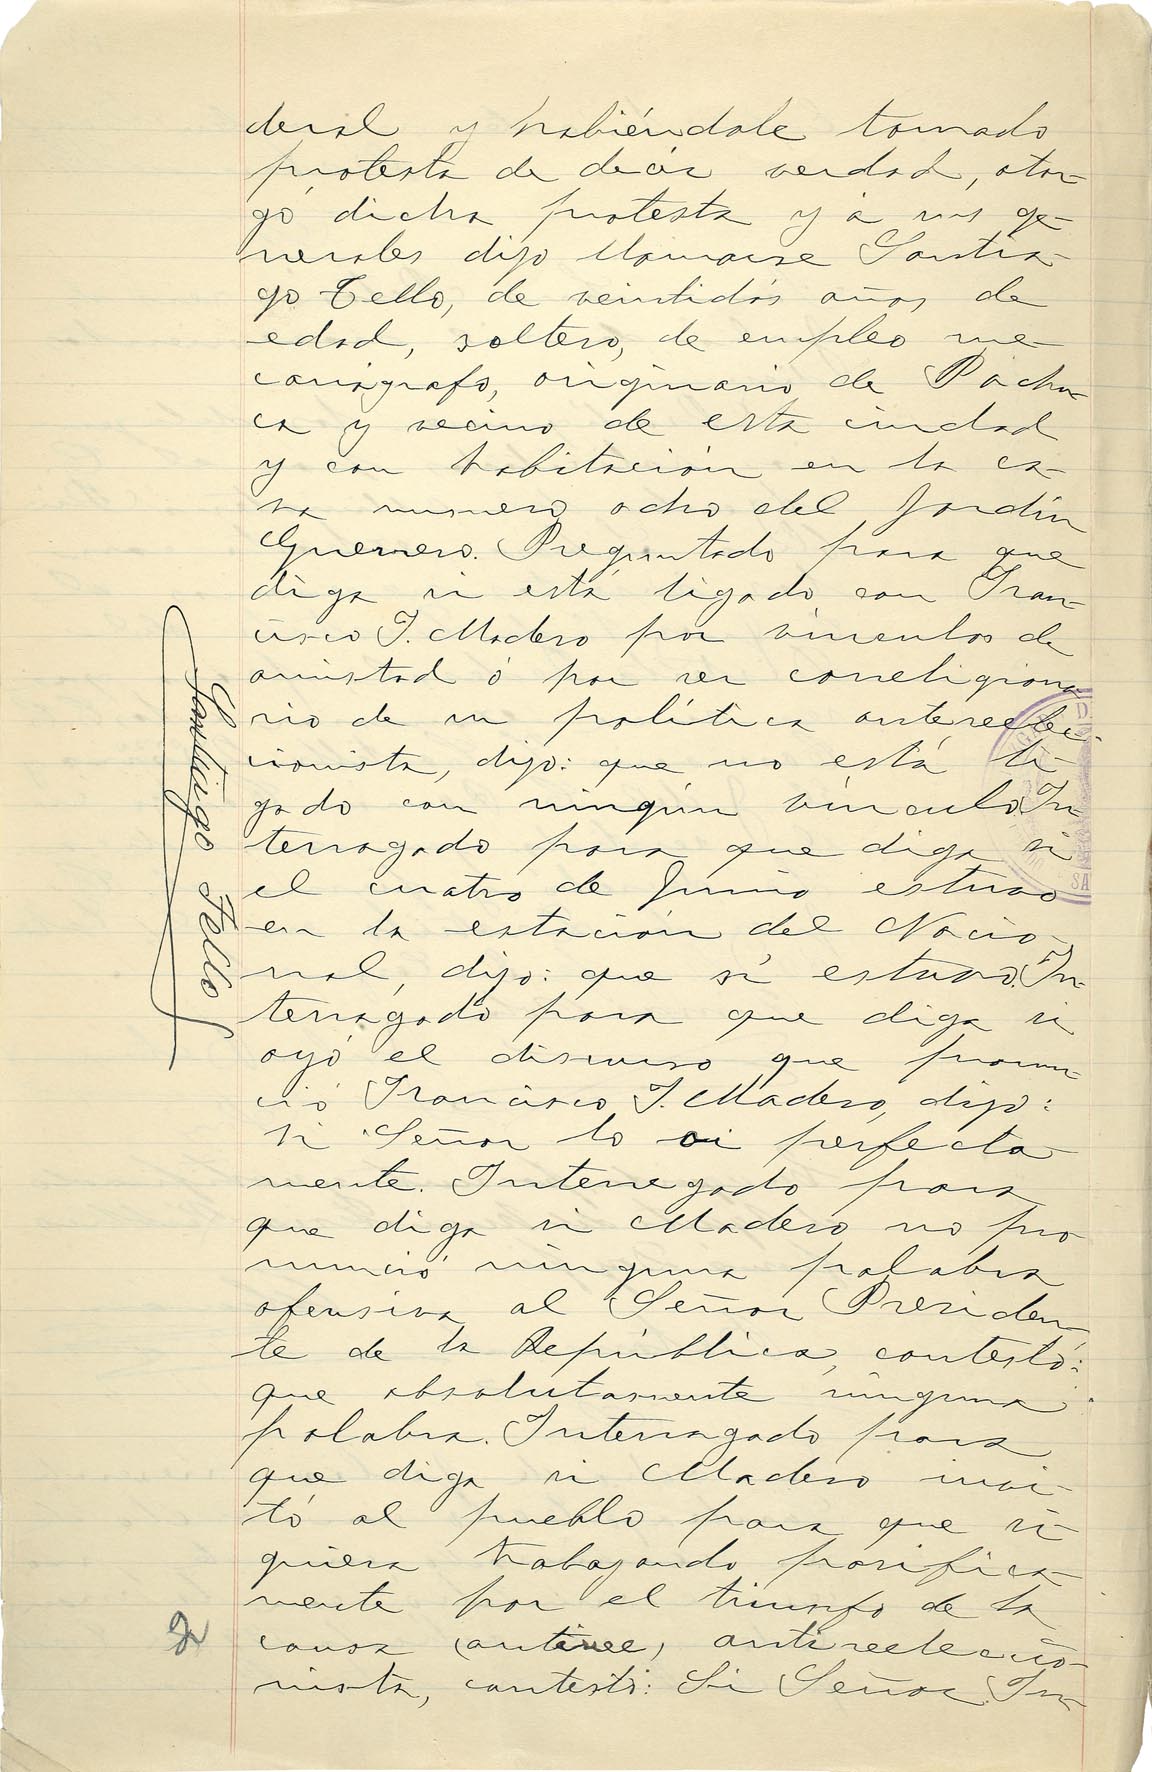 deral y habiéndole tomado
protesta de decir verdad, otor-
gó dicha protesta y á sus ge-
nerales dijo llamarse Santia-
go Tello, de veintidós años de
edad, soltero, de empleo me-
canógrafo, originario de Pachu-
ca y vecino de esta ciudad
y con habitación en la ca-
sa numero ocho del Jardín
Guerrero. Preguntado para que
diga si está ligado con Fran-
cisco I. Madero por vinculos de
amistad ó por ser correligiona
rio de su política antereelec-
cionista, dijo: que no está li-
gado con ningún vinculo. In-
terrogado para que diga si
el cuatro de Junio estuvo
en la estación del Nacio-
nal, dijo: que sí estuvo. In-
terrogado para que diga si
oyó el discurso que pronun-
ció Francisco I. Madero, dijo:
si Señor lo oi perfecta-
mente. Interrogado para
que diga si Madero no pro
nunció ninguna palabra
ofensiva al Señor Presiden-
te de la República, contestó:
que absolutamente ninguna
palabra. Interrogado para
que diga si Madero invi-
tó al pueblo para que si-
guiera trabajando pasifica-
mente por el triunfo de la
causa (antiree) antireeleccio-
nista, contestó: Si Señor. In-
Santiago Tello
2